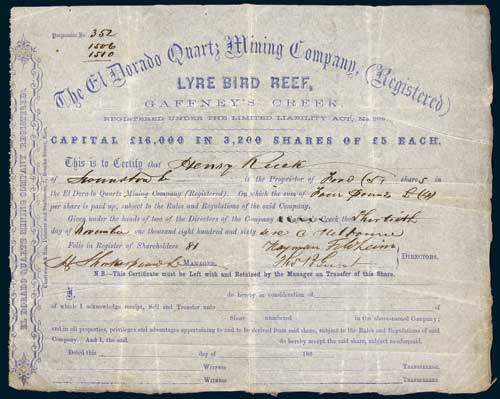 Progressive No. 352
1506
1510
The El Dorado Quartz Mining Company, (Registered)
LYRE BIRD REEF,
GAFFNEY'S CREEK.
REGISTERED UNDER THE LIMITED LIABILITY ACT, No.
CAPITAL £16,000 IN 3,200 SHARES OF £5 EACH.
This is to Certify that Henry
of is the Proprietor of Shares
in the El Dorado Quartz Mining Company (Registered). On which the sum of Four Pounds
per share is paid up, subject to the Rules and Regulations of the said Company.
Given under the hands of two of the Directors of the Company this Thirtieth
day of November one thousand eight hundred and sixty Melbourne
Folio in Register of Shareholders 81
DIRECTORS.
MANAGER,
N.B.—This Certificate must be Left with and Retained by the Manager on Transfer of this Share.
do hereby in consideration of
of which I acknowledge receipt, Sell and Transfer unto
of Share numbered in the above-named Company;
and in all properties, privileges and advantages appertaining to and to be derived from said share, subject to the Rules and Regulations of said
Company. And I, the said do hereby accept the said share, subject as aforesaid.
Dated this day of 186
WITNESS TRANSFEREE.
WITNESS TRANSFERER.
EL DORADO QUARTZ MINING COMPANY REGISTERED.